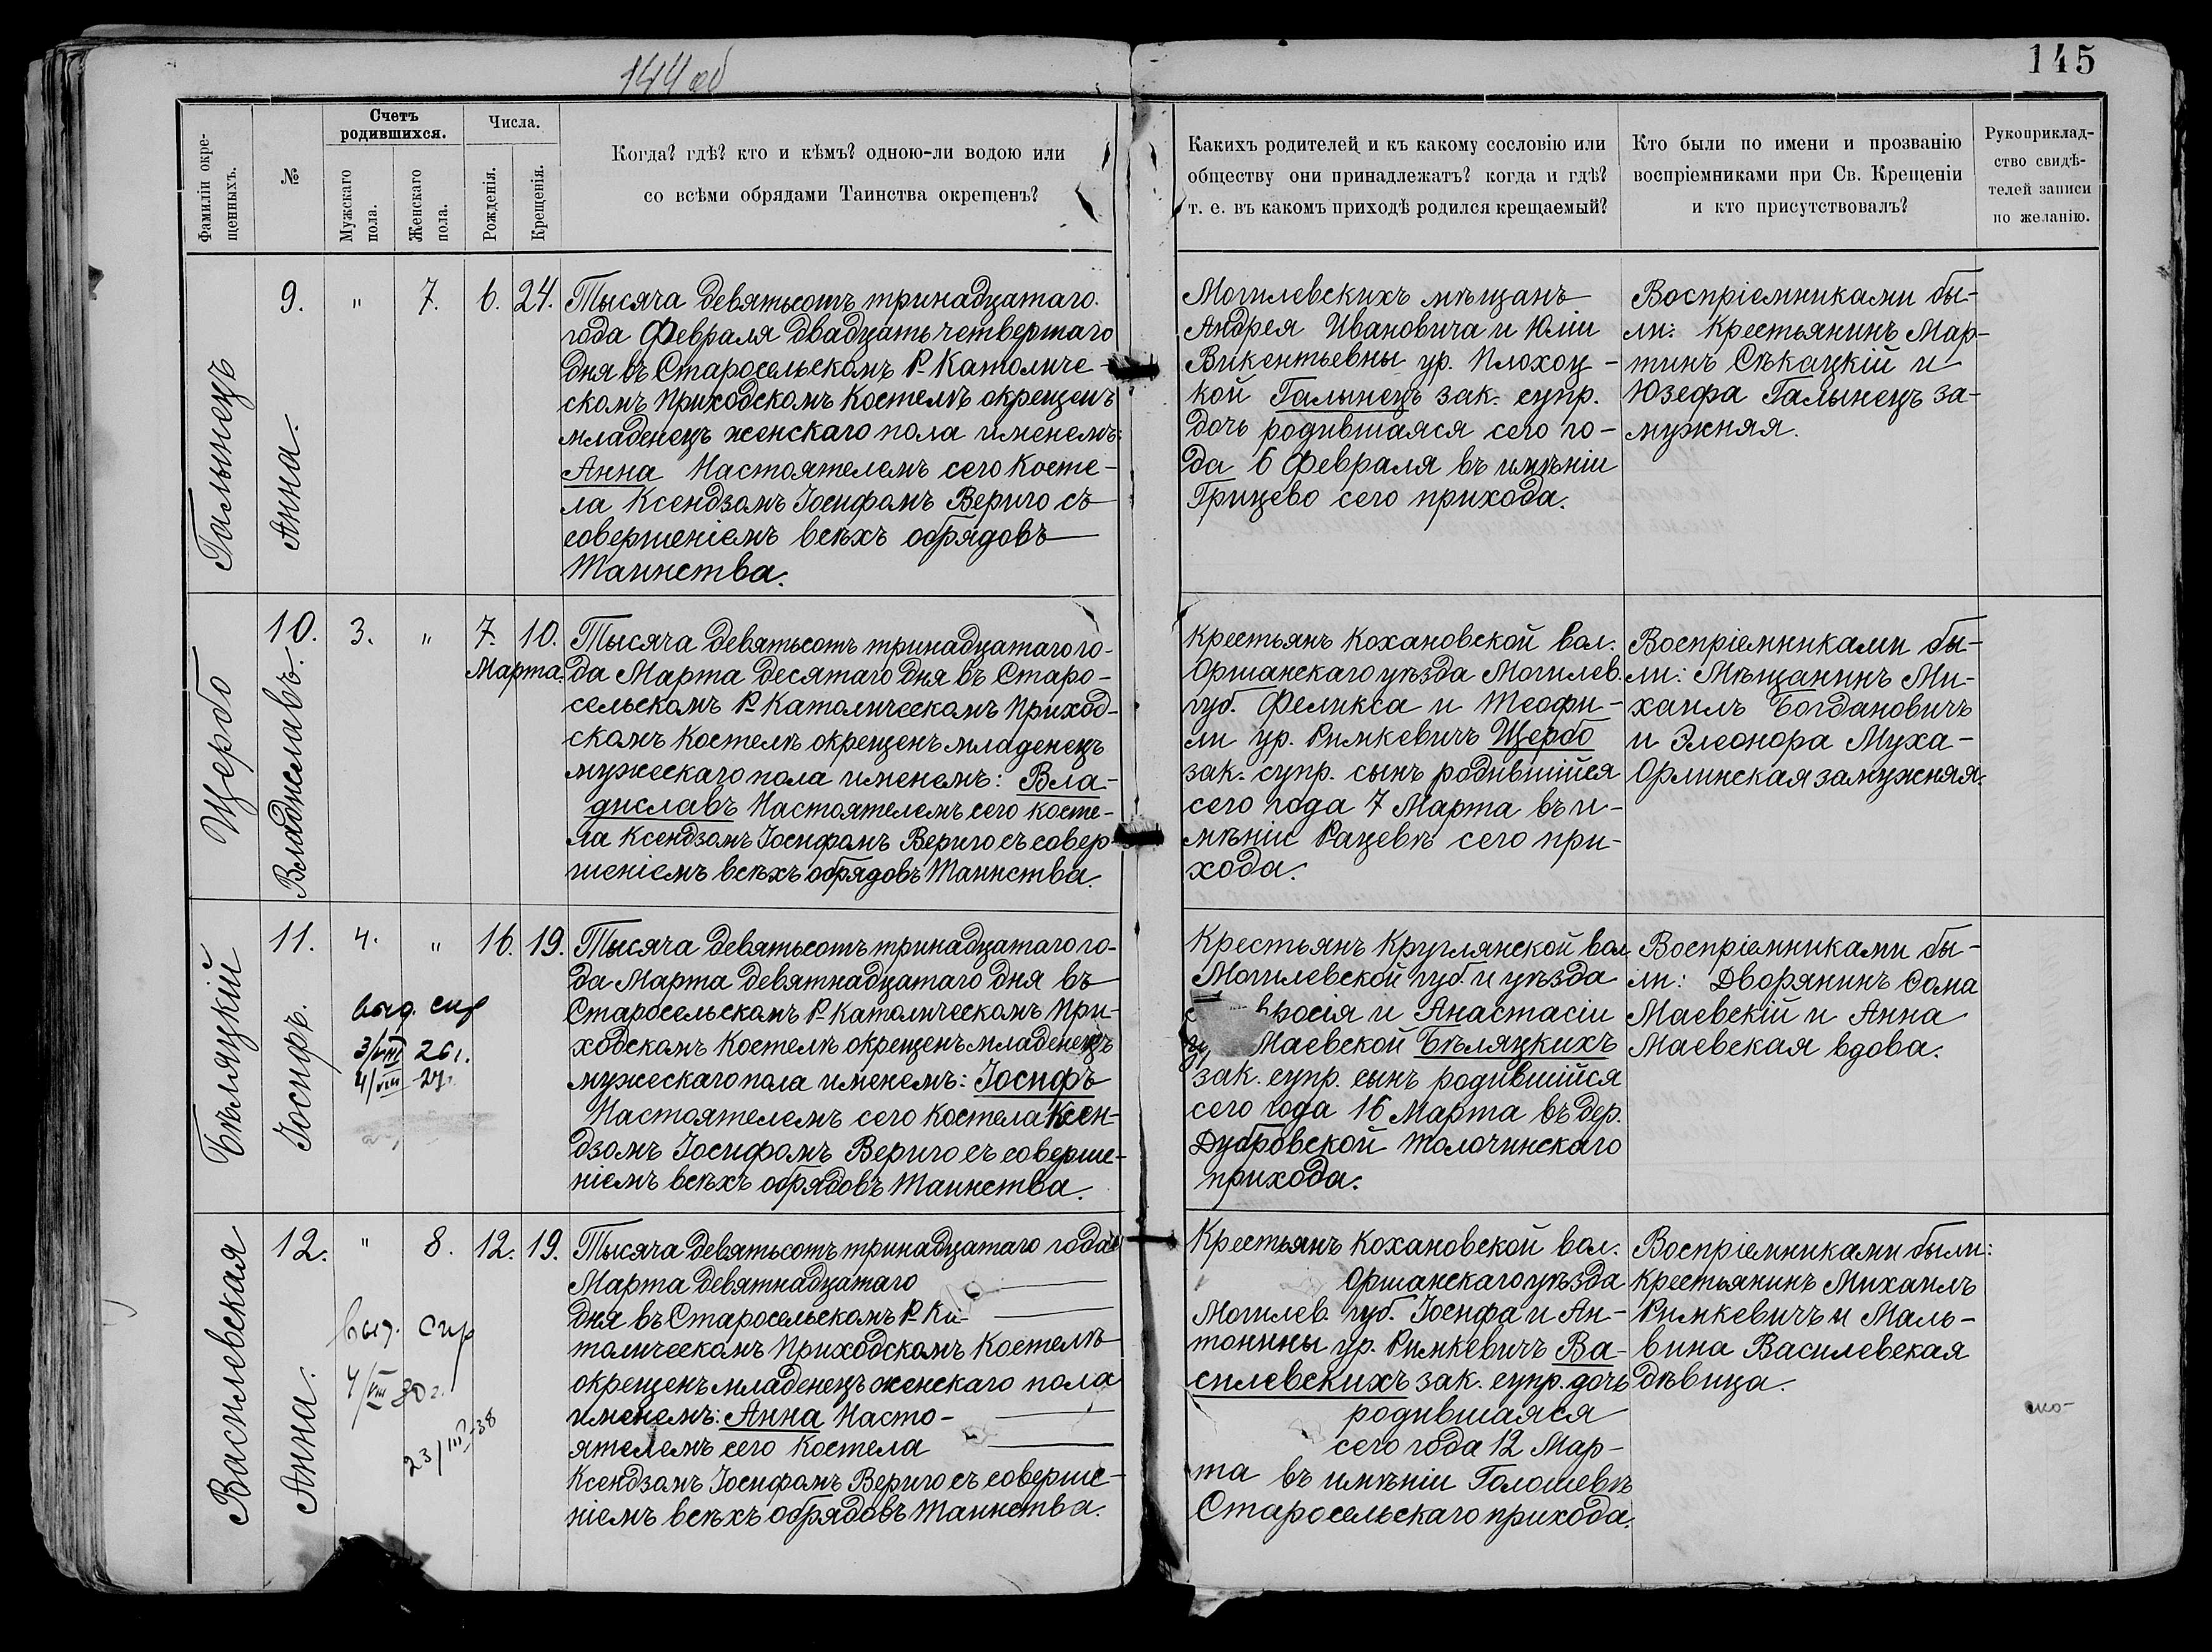 144 об
145
Фамиліи окре-
щенныхъ.
№
Счетъ
родившихся.
Мужскаго
пола.
Женскаго
пола.
Числа.
Рожденія.
Крещенія.
Когда? гдѣ? кто и кѣмъ? одною-ли водою или
со всѣми обрядами Таинства окрещенъ?
Какихъ родителей и къ какому сословію или
обществу они принадлежатъ? когда и гдѣ?
т. е. въ какомъ приходѣ родился крещаемый?
Кто были по имени и прозванію
воспріемниками при Св. Крещеніи
и кто присутствовалъ?
Рукоприклад-
ство свидѣ-
телей записи
по желанію.
Галынецъ
9.
Анна.
"
7.
6.
24.
Тысяча девятьсотъ тринадцатаго
года Февраля двадцать четвертаго
дня въ Старосельскомъ Р-Католиче-
скомъ Приходскомъ Костелѣ окрещенъ
младенецъ женскаго пола именемъ:
Анна Настоятелемъ сего Косте-
ла Ксендзомъ Іосифомъ Вериго съ
совершеніемъ всѣхъ обрядовъ
Таинства.
Могилевскихъ мѣщанъ
Андрея Ивановича и Юліи
Викентьевны ур. Плохоц-
кой Галынецъ зак. супр.
дочь родившаяся сего го-
да 6 Февраля въ имѣніи
Грицево сего прихода.
Воспріемниками бы-
ли: Крестьянинъ Мар-
тинъ Сѣкацкій и
Юзефа Галынецъ за-
мужняя.
Щербо
10.
Владиславъ.
3.
"
7.
10.
Марта.
Тысяча девятьсотъ тринадцатаго го-
да Марта десятаго дня въ Старо-
сельскомъ Р-Католическомъ Приход-
скомъ Костелѣ окрещенъ младенецъ
мужескаго пола именемъ: Вла-
диславъ Настоятелемъ сего косте-
ла Ксендзомъ Іосифомъ Вериго съ совер
шеніемъ всѣхъ обрядовъ Таинства.
Крестьянъ Кохановской вол.
Оршанскаго уѣзда Могилев.
губ. Феликса и Теофи-
ли ур. Римкевичъ Щербо
зак. супр. сынъ родившійся
сего года 7 Марта въ и-
мѣніи Рацевѣ сего при-
хода.
Воспріемниками бы-
ли: Мѣщанинъ Ми-
хаилъ Богдановичъ
и Элеонора Муха-
Орлинская замужняя.
Бѣляцкій
11.
Іосифъ.
4.
"
16.
19.
выд. спр
3/VIII 26 г.
4/VIII - 27.
Тысяча девятьсотъ тринадцатаго го-
да Марта девятнадцатаго дня въ
Старосельскомъ Р-Католическомъ При-
ходскомъ Костелѣ окрещенъ младенецъ
мужескаго пола именемъ: Іосифъ
Настоятелемъ сего Костела Ксен-
дзомъ Іосифомъ Вериго съ соверше-
ніемъ всѣхъ обрядовъ Таинства.
Крестьянъ Круглянской вол
Могилевской губ. и уѣзда
и Анастасіи
Маевской Бѣляцкихъ
зак. супр. сынъ родившійся
сего года 16 Марта въ дер.
Дубровской Толочинскаго
прихода.
Воспріемниками бы-
ли: Дворянинъ Ѳома
Маевскій и Анна
Маевская вдова.
Василевская
12.
Анна.
"
8.
12.
19.
выд. спр
4/VIII 30 г.
23/III-38
Тысяча девятьсотъ тринадцатаго года
Марта девятнадцатаго
дня въ Старосельскомъ Р-Ка-
толическомъ Приходскомъ Костелѣ
окрещенъ младенецъ женскаго пола
именемъ: Анна Насто-
ятелемъ сего Костела
Ксендзомъ Іосифомъ Вериго съ соверше-
ніемъ всѣхъ обрядовъ Таинства.
Крестьянъ Кохановской вол.
Оршанскаго уѣзда
Могилев. губ. Іосифа и Ан-
тонины ур. Римкевичъ Ва-
силевскихъ зак. супр. дочь
родившаяся
сего года 12 Мар-
та въ имѣніи Голошевѣ
Старосельскаго прихода.
Воспріемниками были:
Крестьянинъ Михаилъ
Римкевичъ и Маль-
вина Василевская
дѣвица.